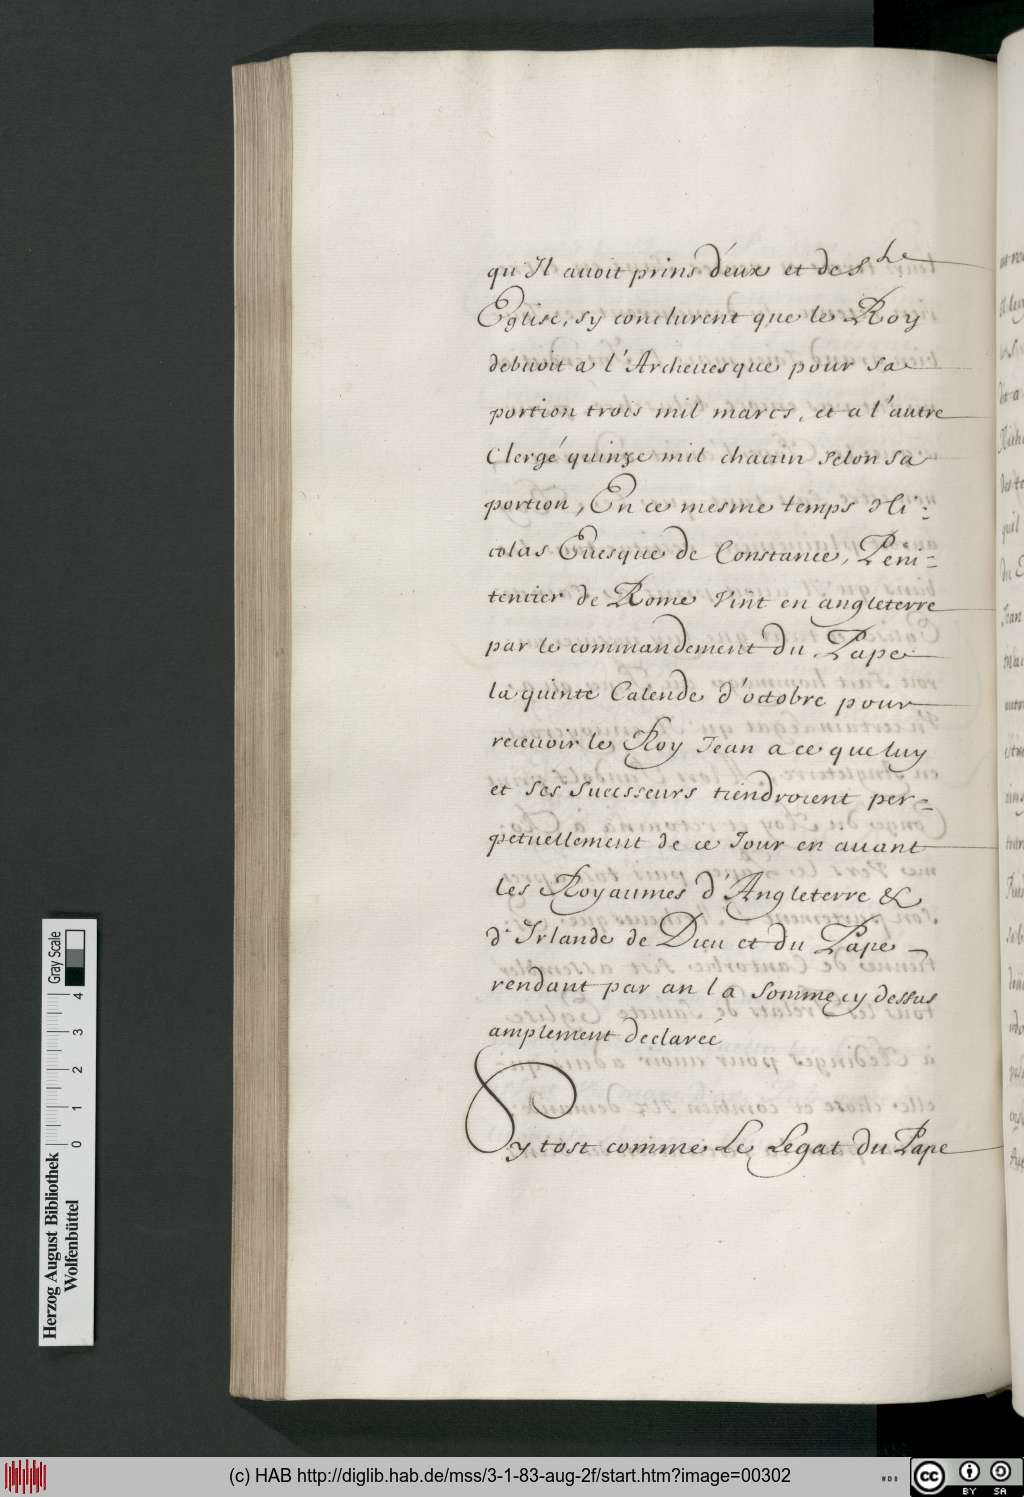 qu'Il auoit prins d'eux et de Ste
Eglise, sy conclurent que le Roy
debuoit a l'Archeuesque pour sa
portion trois mil marcs, et a l'autre
Clergé quinze mil chacun selon sa
portion, En ce mesme temps Ni:
colas Euesque de Constance, Peni=
tencier de Rome vint en angleterre
par le commandement du Pape
la quinte Calende d'octobre pour
receuoir le Roy Jean a ce que luy
et ses successeurs tiendroient per=
petuellement de ce Jour en auant
les Royaumes d'Angleterre &
d'Irlande de Dieu et du Pape
rendant par an la somme cy dessus
amplement declareé
Sy tost comme Le Legat du Pape
Herzog August Bibliothek
Wolfenbüttel
0 1 2 3 4
Gray Scale
(c) HAB http://diglib.hab.de/mss/3-1-83-aug-2f/start.htm?image=00302
WDB
cc BY SA